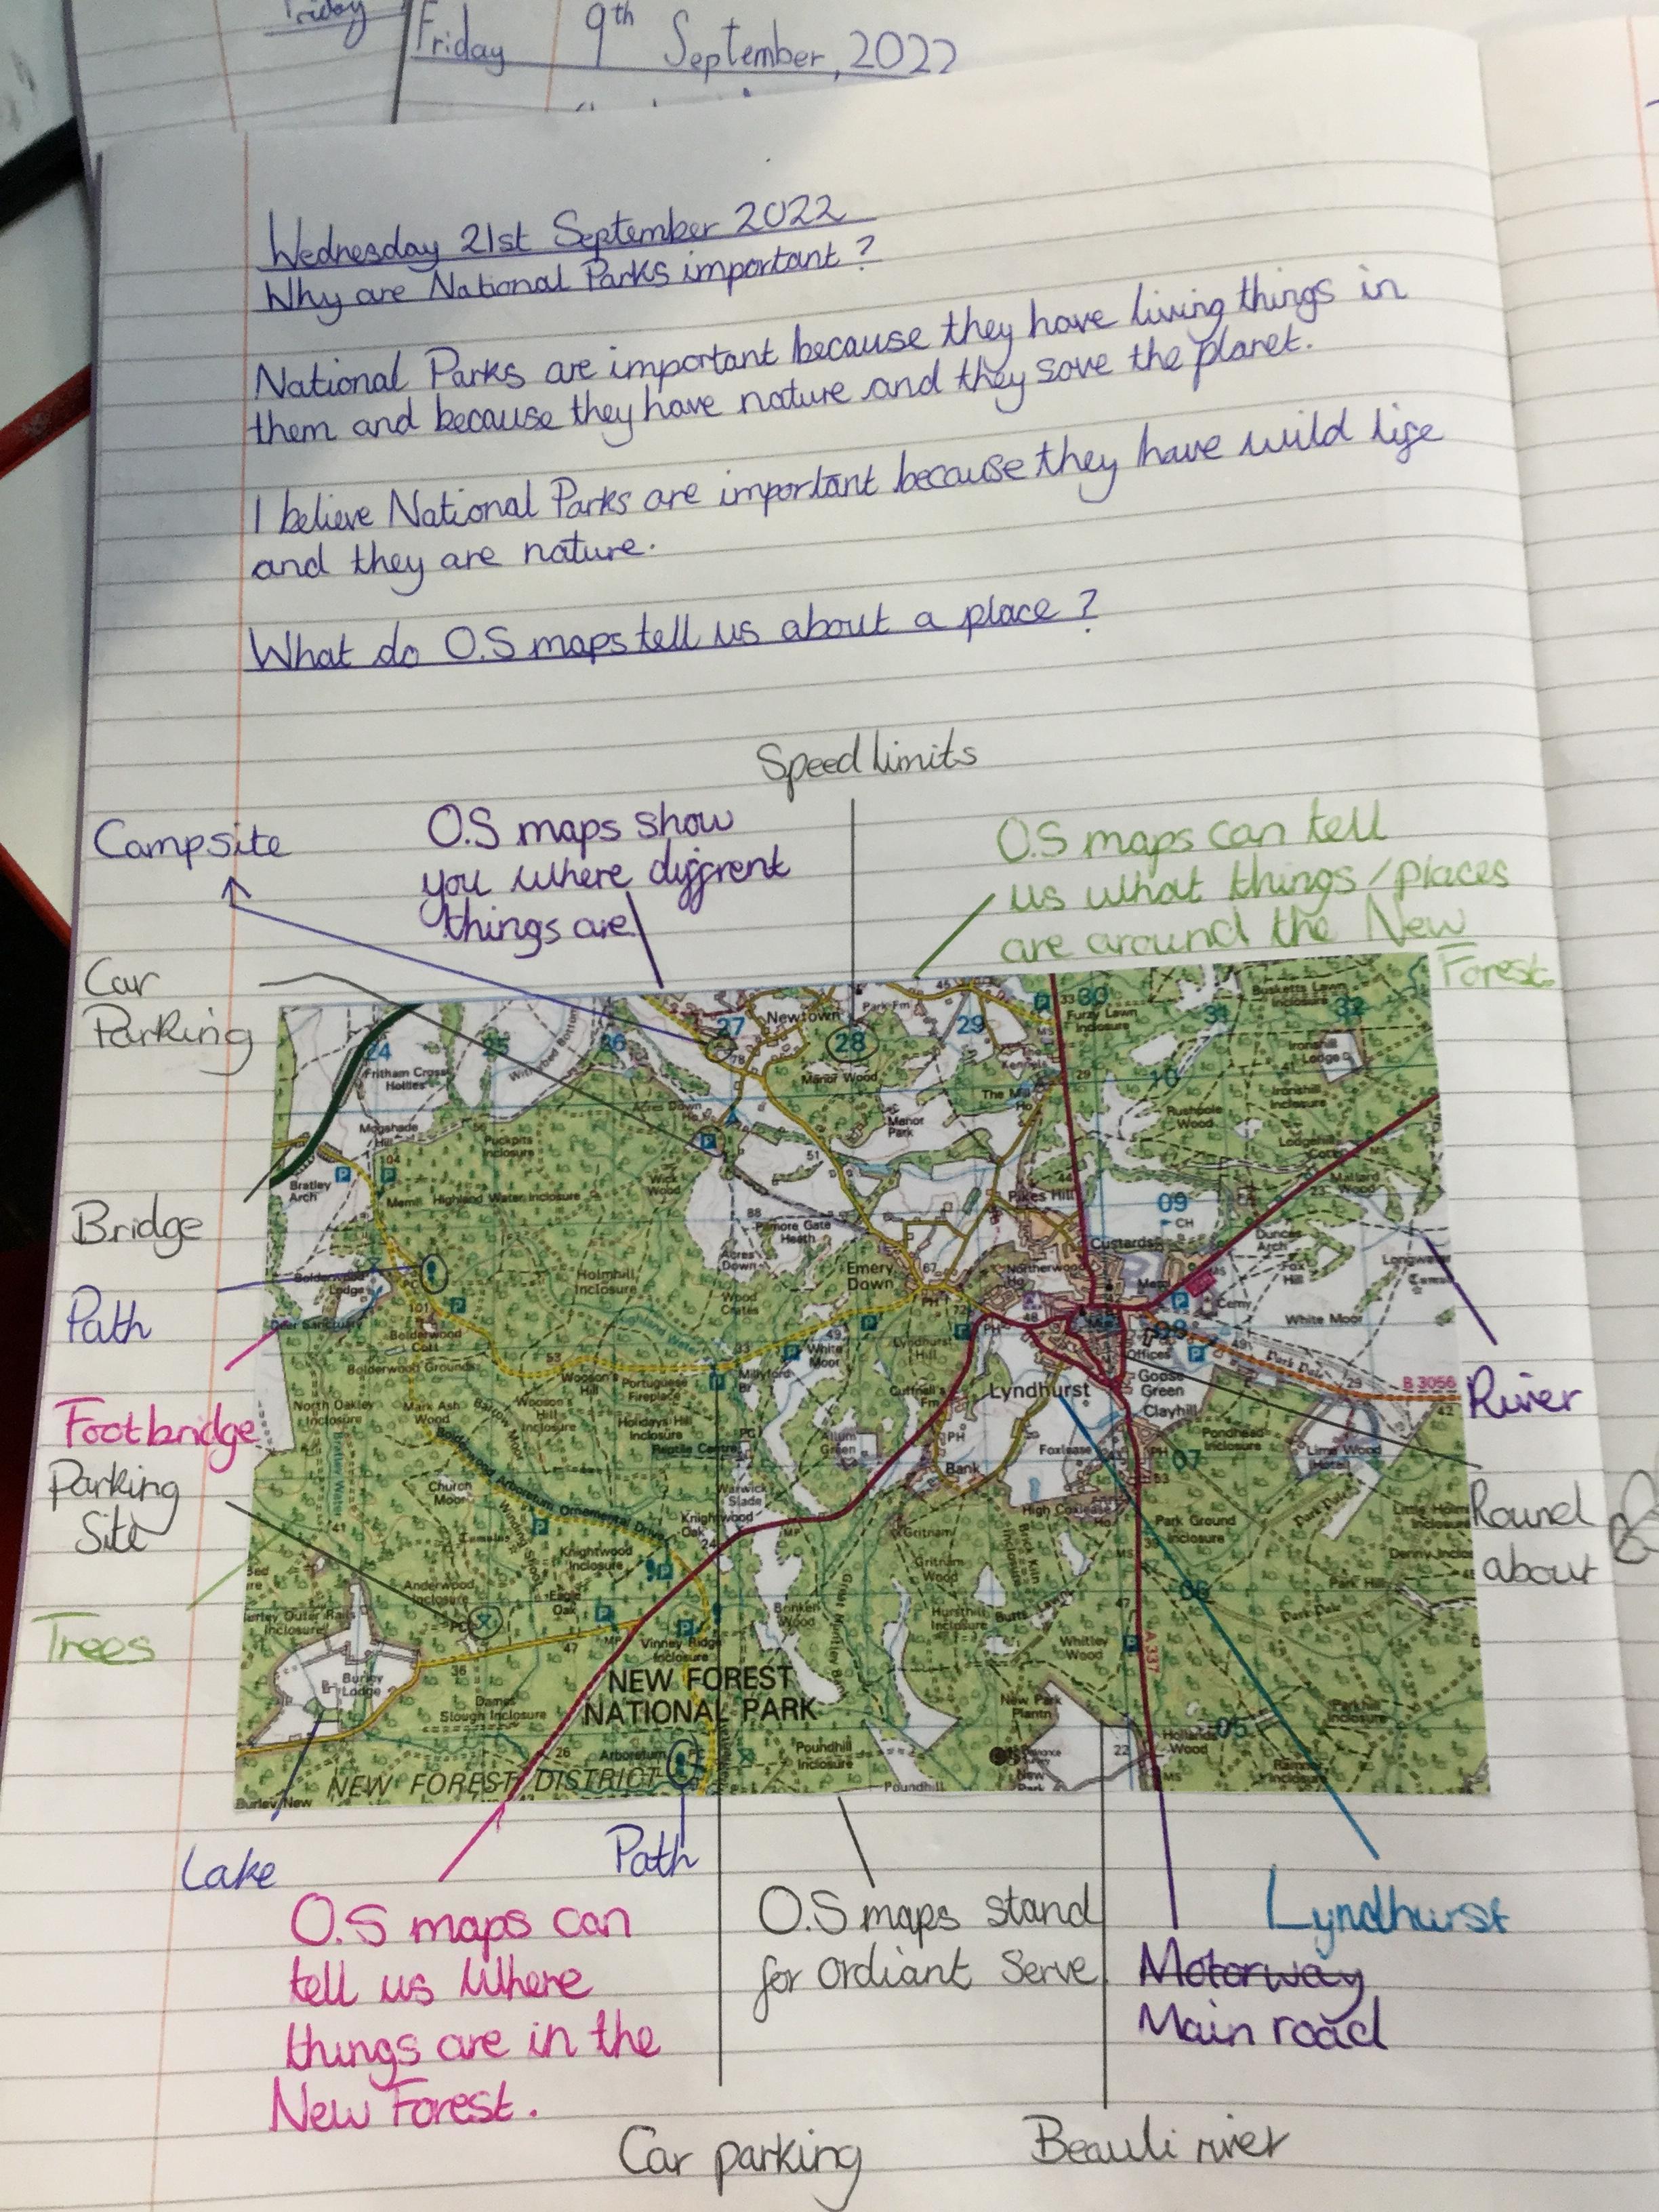 Friday
Friday 9th September, 2022
Wednesday 21st September 2022
Why are National Parks important?
National Parks are important because they have living things in
them and because they have nature and they save the planet.
I believe National Parks are important because they have wild life
and they are nature.
What do O.S maps tell us about a place?
Speed limits
Campsite
O.S maps show
you where diffrent
things are
O.S maps can tell
us what things/places
are around the New
Forest.
Car
Parking
Bridge
Path
Footbridge
Parking
Site
Trees
River
Round
about
Lake
Path
O.S maps can
tell us Where
things are in the
New Forest.
O.S maps stand
for Ordiant Serve
Lyndhurst
Motorway
Main road
Car parking
Beauli river
24
25
26
27
28
29
30
31
32
Newtown
Park Fm
45
33
Furzy Lawn
Inclosure
Busketts Lawn
Inclosure
Fritham Cross
Hollies
Manor Wood
Kennels
29
10
Ironshill
Lodge
Ironshill
Inclosure
Mogshade
Hill
Puckpits
Inclosure
Acres Down
The Mill
Manor
Park
Rushpole
Wood
Lodgehill
104
51
Bratley
Arch
Highland Water Inclosure
Wick
Wood
Pikes Hill
09
CH
Mallard
Wood
88
Pilmore Gate
Heath
Acres
Down
Custards
Dunces
Arch
Fox
Hill
Longwater
Bolderwood
Lodge
PC
Holmhill
Inclosure
Emery
Down
67
Northerwood
Ho
Cemy
White Moor
Deer Sanctuary
101
Bolderwood
Wood
Crates
PH
72
PH
48
08
49
Highland Water
33
49
White
Moor
Lyndhurst
Hill
Offices
Park Pale
29
B 3056
42
Bolderwood Grounds
53
Wooson's
Hill
Portuguese
Fireplace
Millyford
Br
Cuffnell's
Fm
Lyndhurst
Goose
Green
Clayhill
North Oakley
Inclosure
Mark Ash
Wood
Barrow Moor
Wooson's
Hill
Inclosure
Holidays Hill
Inclosure
Reptile Centre
Allum
Green
PH
Bank
Foxlease
PH
53
07
Pondhead
Inclosure
Lime Wood
Hotel
Bratley Water
Bolderwood Arboretum Ornamental Drive
Church
Moor
Warwick
Slade
High Coxlease
Ho
Park Ground
Inclosure
Park Pale
41
Tumulus
Knightwood
Oak
MP
Gritnam
Knightwood
Inclosure
24
Gritnam
Wood
Brick Kiln
Inclosure
MS
06
Park Hill
Anderwood
Inclosure
Eagle
Oak
Burley Outer Rails
Inclosure
PC
47
MP
Vinney Ridge
Inclosure
Brinken
Wood
Hursthill
Inclosure
Butts Lawn
47
Park Pale
Whitley
Wood
A 337
Burley
Lodge
36
Dames
Slough Inclosure
NEW FOREST
NATIONAL PARK
New Park
Plantn
Hollands
Wood
05
Parkhill
Inclosure
26
Arboretum
Poundhill
Inclosure
22
New
Park
Burley New
NEW FOREST DISTRICT
Poundhill
MS